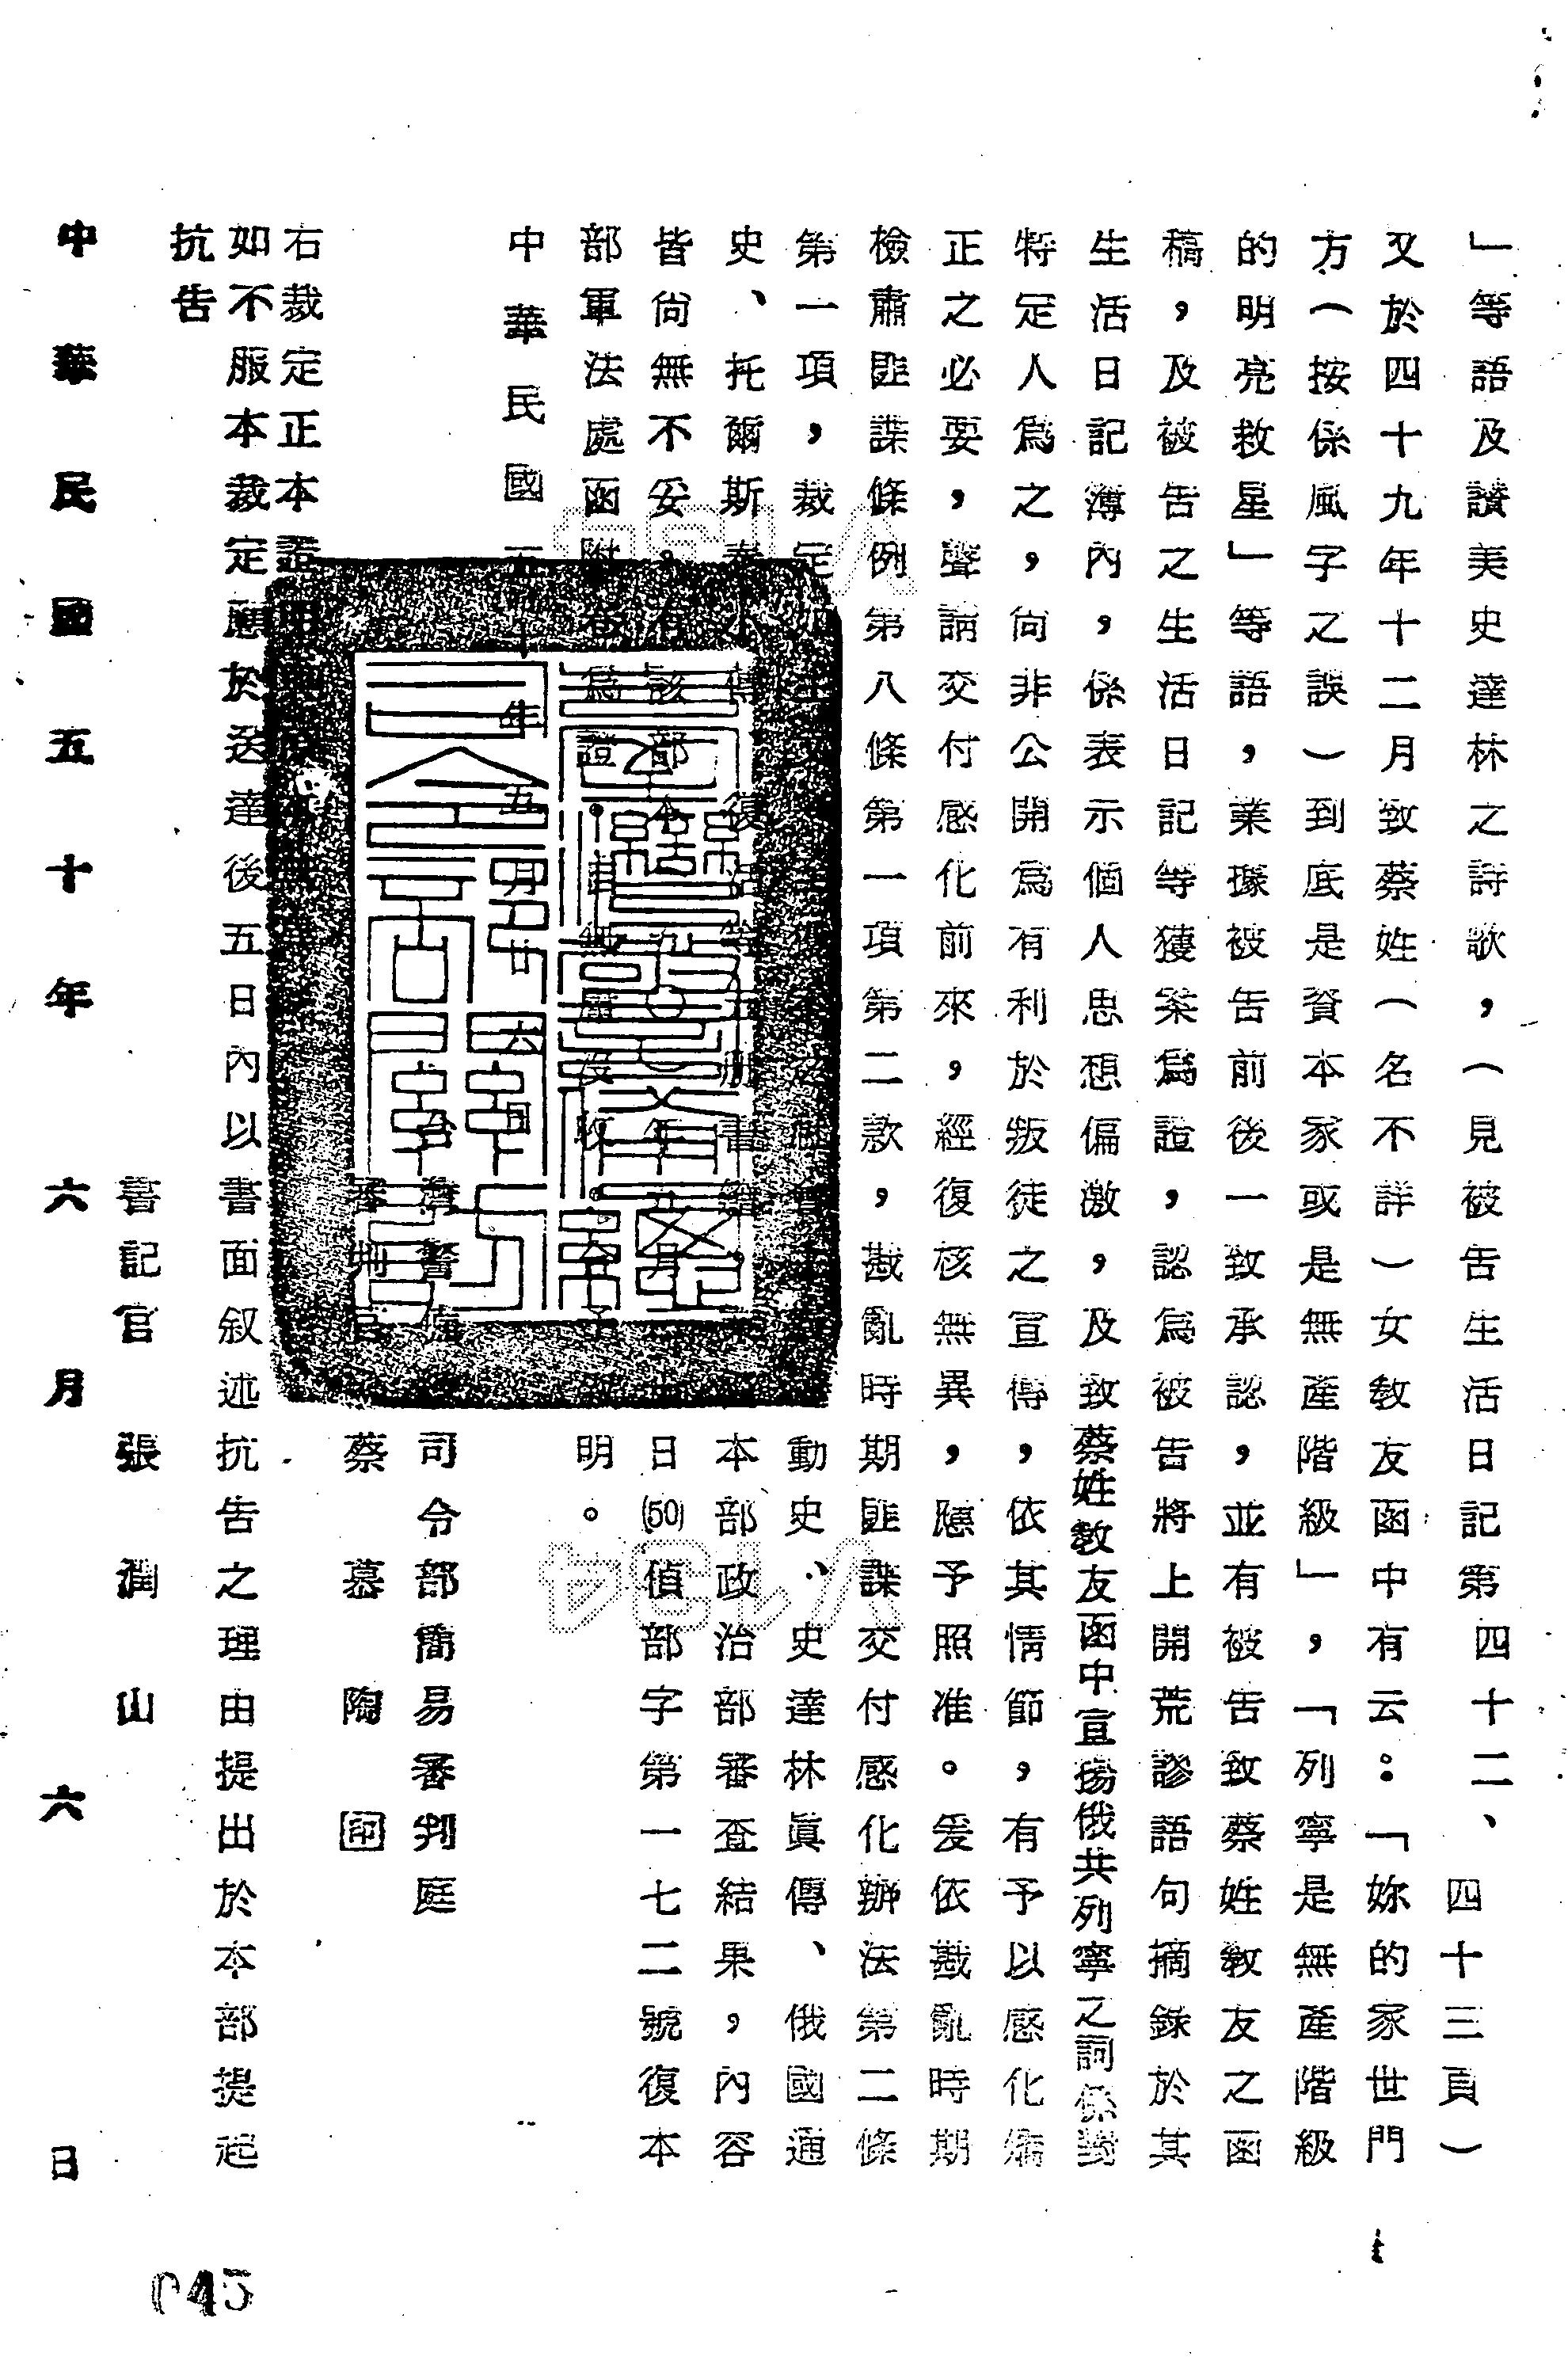 」等語及讚美史達林之詩歌，（見被告生活日記第四十二、四十三頁）
又於四十九年十二月致蔡姓（名不詳）女教友函中有云：「妳的家世門
方（按係風字之誤）到底是資本家或是無產階級」，「列寧是無產階級
的明亮救星」等語，業據被告前後一致承認，並有被告致蔡姓教友之函
稿，及被告之生活日記等獲案為證，認為被告將上開荒謬語句摘錄於其
生活日記簿內，係表示個人思想偏激，及致蔡姓教友函中宣揚俄共列寧之詞係對
特定人為之，尚非公開為有利於叛徒之宣傳，依其情節，有予以感化矯
正之必要，聲請交付感化前來，經復核無異，應予照准。爰依戡亂時期
檢肅匪諜條例第八條第一項第二款，戡亂時期匪諜交付感化辦法第二條
第一項，裁定動史、史達林眞傳、俄國通
史、托爾斯泰小傳復活等書籍本部政治部審查結果，內容
皆尙無不妥，有該部五月日(50)偵部字第一七二號復本
部軍法處函附卷為證。沒收予明。
中華民國五十年五月廿六日
台灣警備司令部簡易審判庭
審判官蔡慕陶印
右裁定正本證明
如不服本裁定應於送達後五日內以書面叙述抗告之理由提出於本部提起
抗告
書記官張潤山
中華民國五十年六月六日
045